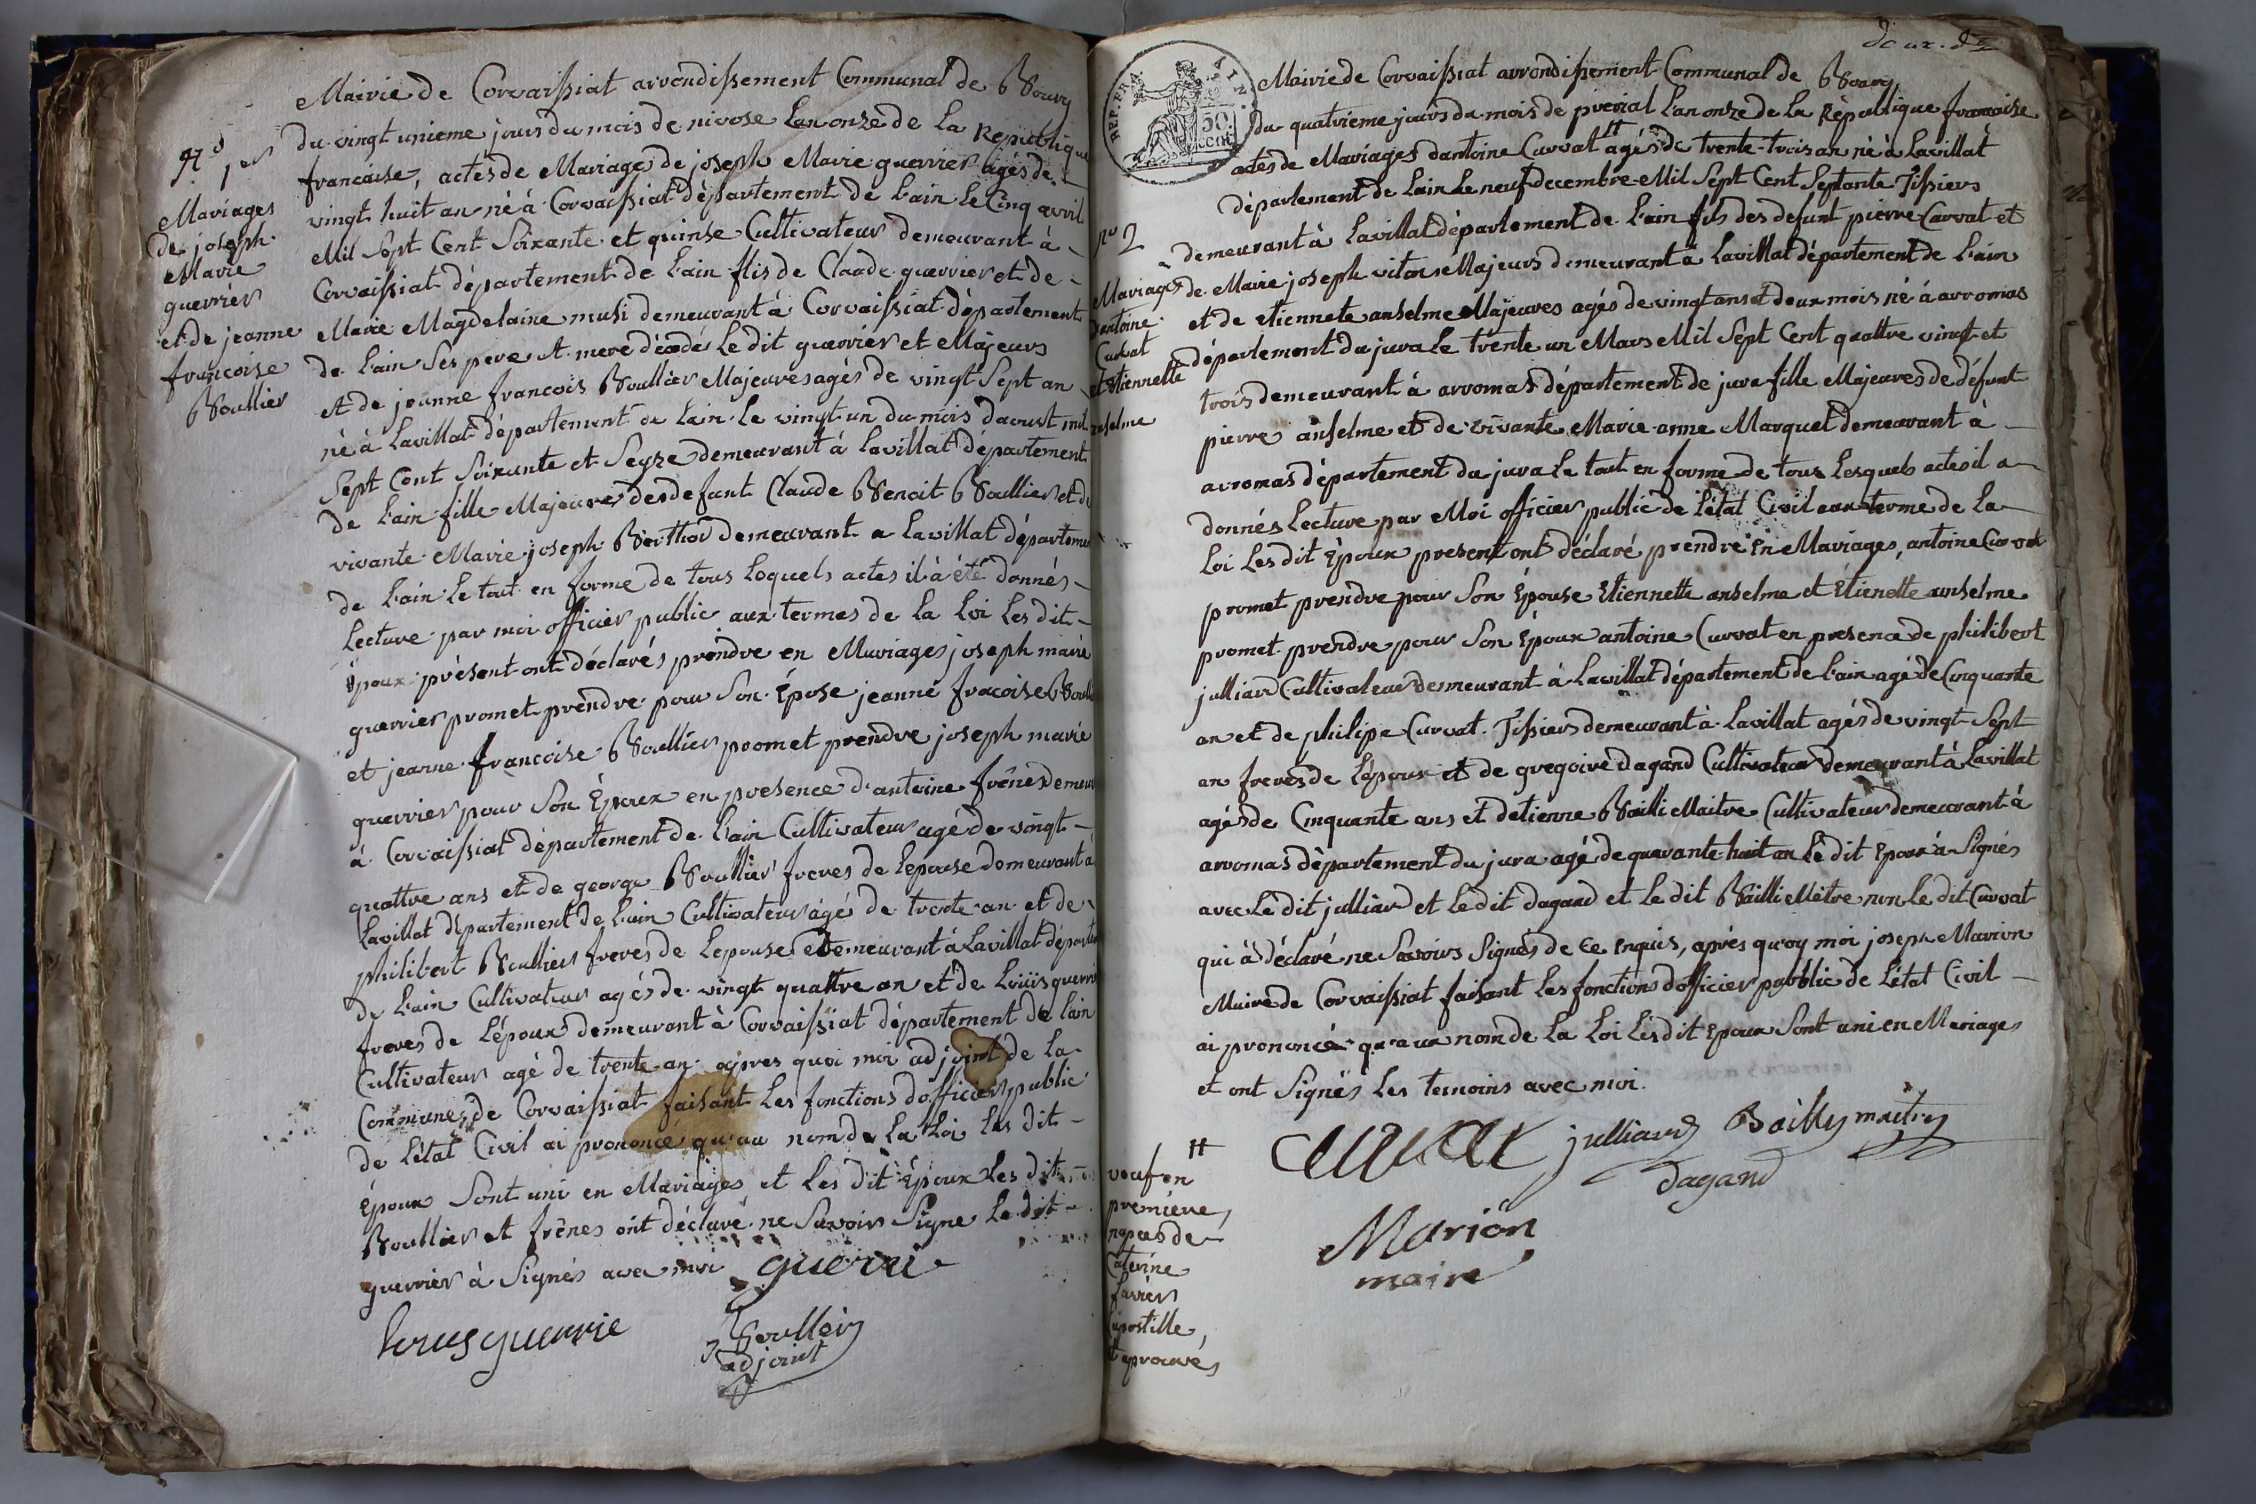 Mairie de Corvaissiat arrondissement Communal de Bourg
du vingt unieme jours du mois de nivose Lan onze de La Republique
francaise, actes de Mariages de joseph Marie guerrier agés de
vingt huit an né à Corvaissiat département de Lain Le Cinq avril
Mil Sept Cent Soixante et quinse Cultivateur demeurant à
Corvaissiat département de Lain flis de Claude guerrier et de
Marie Magdelaine musi demeurant à Corvaissiat département
de Lain Ses pere et mere décédé Le dit guerrier et Majeurs
et de jeanne francois Boullier Majeures agés de vingt Sept an
né à Lavillat département de Lain Le vingt un du mois daoust mil
Sept Cent Soixante et Seyze demeurant à Lavillat département
de Lain fille Majeures des defunt Claude Benoit Boullier et de
vivante Marie joseph Berthod demeurant a Lavillat départemen
de Lain Le tout en forme de tous Loquels actes il à été donnés
Lecture par moi officier public aux termes de La Loi Les dit
Epoux présent ont déclarés prendre en Mariages joseph marie
guerrier promet prendre pour Son Epose jeanne fracoise Boulli
et jeanne francoise Boullier promet prendre joseph marie
guerrier pour Son Epoux en presence d'antoine frêne demeu
à Corvaissiat département de Lain Cultivateur agé de vingt
quattre ans et de george Boullier freres de Lepouse demeurant à
Lavillat département de Lain Cultivateur agés de trente an et de
philibert Boullier freres de Lepouse demeurant à Lavillat départe
de Lain Cultivateur agés de vingt quattre an et de Loüis guerri
freres de Lépoux demeurant à Corvaissiat département de Lain
Cultivateur agé de trente an apres quoi moi adjoint de La
Communes de Corvaissiat faisant Les fonctions d officier public
de Létat Civil ai prononcé qu'au nom de La Loi Les dit
Epoux Sont uni en Mariages et Les dit Epoux Les dit
Boullier et frênes ont déclaré ne Savoir Signe Le dit
guerrier à Signés avec moi guerrié
Louis guerrie
Boullier
adjoint
N° 1er
Mariages
de joseph
Marie
guerrier
et de jeanne
francoise
Boullier
deux. 2
REP. FRA.
AIN.
50
cent.
Mairie de Corvaissiat arrondissement Communal de Bourg
du quatrieme jours du mois de prerial Lan onze de La République francaise
actes de Mariages dantoine Curvat # agés de trente-trois an né à Lavillat
département de Lain Le neuf decembre Mil Sept Cent Septante Tissiers
demeurant à Lavillat département de Lain fils des defunt pierre Curvat et
de Marie joseph viton Majeurs demeurant à Lavillat département de Lain
et de Etiennete anselme Majeures agés de vingt ans et deux mois né à arromas
département du jura Le trente un Mars Mil Sept Cent quattre vingt et
trois demeurant à arromas département de jura fille Majeures de défunt
pierre anselme et de vivante Marie anne Marquet demeurant à
arromas département du jura Le tout en forme de tous Lesquels actes il a
donnés Lecture par Moi officier public de Létat Civil aux terme de La
Loi Les dit Epoux present ont déclaré prendre En Mariages, antoine Curvat
promet prendre pour Son Epouse Etiennette anselme et Etienette anselme
promet prendre pour Son Epoux antoine Curvat en presence de philibert
julliard Cultivateur demeurant à Lavillat département de Lain agé de Cinquante
an et de philipe Curvat Tissiers demeurant à Lavillat agés de vingt Sept
an freres de Lépoux et de gregoire dagand Cultivateur demeurant à Lavillat
agés de Cinquante ans et detienne Bailli Maitre Cultivateur demeurant à
arromas département du jura agé de quarante huit an Le dit Epoux à Signés
avec Le dit julliard et Le dit dagand et le dit Bailli Mètre non Le dit Curvat
qui à déclaré ne Savoirs Signés de Ce Enquis, après quoy moi joseph Marion
Maire de Corvaissiat faisant Les fonctions dofficier public de Létat Civil
ai prononcé qu'aux nom de La Loi Les dit Epoux Sont uni en Mariages
et ont Signés Les temoins avec moi.
Curvat julliard Bailly maitre
dagand
Marion
maire
N° 2
Mariages
dantoine
Curvat
et Etiennette
anselme
#
veuf en
premiere
nopces de
Caterine
favier
apostille
approuvés